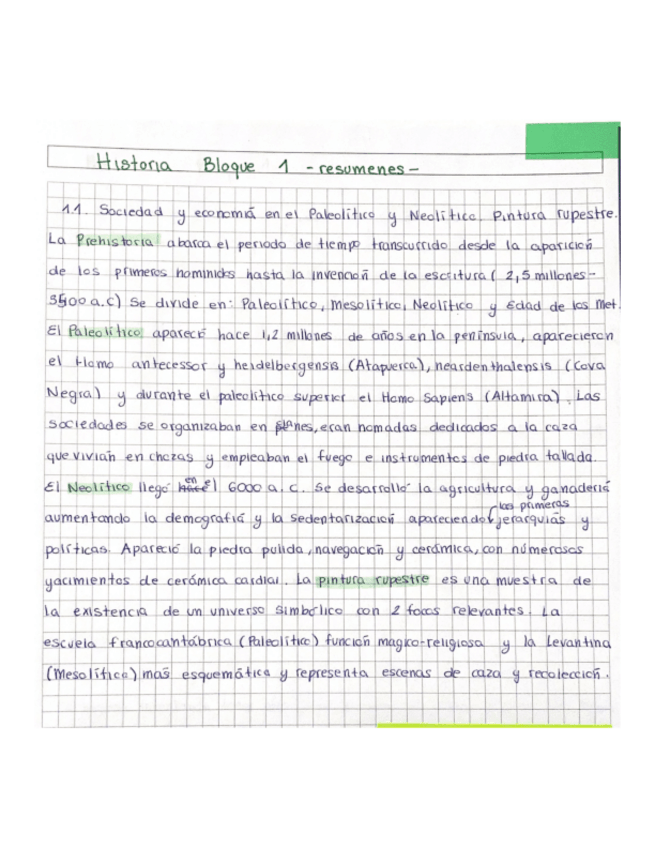 Historia Bloque 1 - resumenes -
1.1. Sociedad y economía en el Paleolítico y Neolítico. Pintura rupestre.
La Prehistoria abarca el periodo de tiempo transcurrido desde la aparición
de los primeros hominidos hasta la invención de la escritura ( 2,5 millones -
3500 a.c) Se divide en: Paleolítico, Mesolítico, Neolítico y Edad de los Met.
El Paleolítico apareció hace 1,2 millones de años en la península, aparecieron
el Homo antecessor y heidelbergensis (Atapuerca), neardenthalensis (Cova
Negra) y durante el paleolítico superior el Homo Sapiens (Altamira). Las
sociedades se organizaban en clanes, eran nomadas dedicados a la caza
que vivían en chozas y empleaban el fuego e instrumentos de piedra tallada.
El Neolítico llegó en el 6000 a.c. Se desarrolló la agricultura y ganadería
aumentando la demografía y la sedentarización apareciendo las primeras jerarquías y
políticas. Apareció la piedra pulida, navegación y cerámica, con numerosos
yacimientos de cerámica cardial. La pintura rupestre es una muestra de
la existencia de un universo simbólico con 2 focos relevantes. La
escuela francocantábrica (Paleolítico) función magico-religiosa y la Levantina
(Mesolítico) más esquemática y representa escenas de caza y recolección.